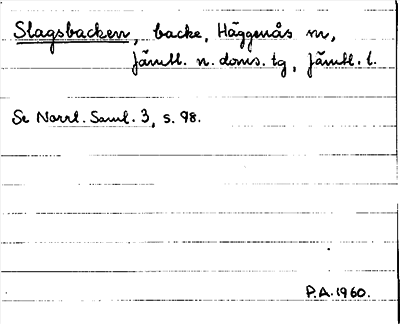 Slagsbacken, backe, Häggenås sn,
Jämtl. n. doms. tg, Jämtl. l.
Se Norrl. Saml. 3, s. 98.
P.A. 1960.